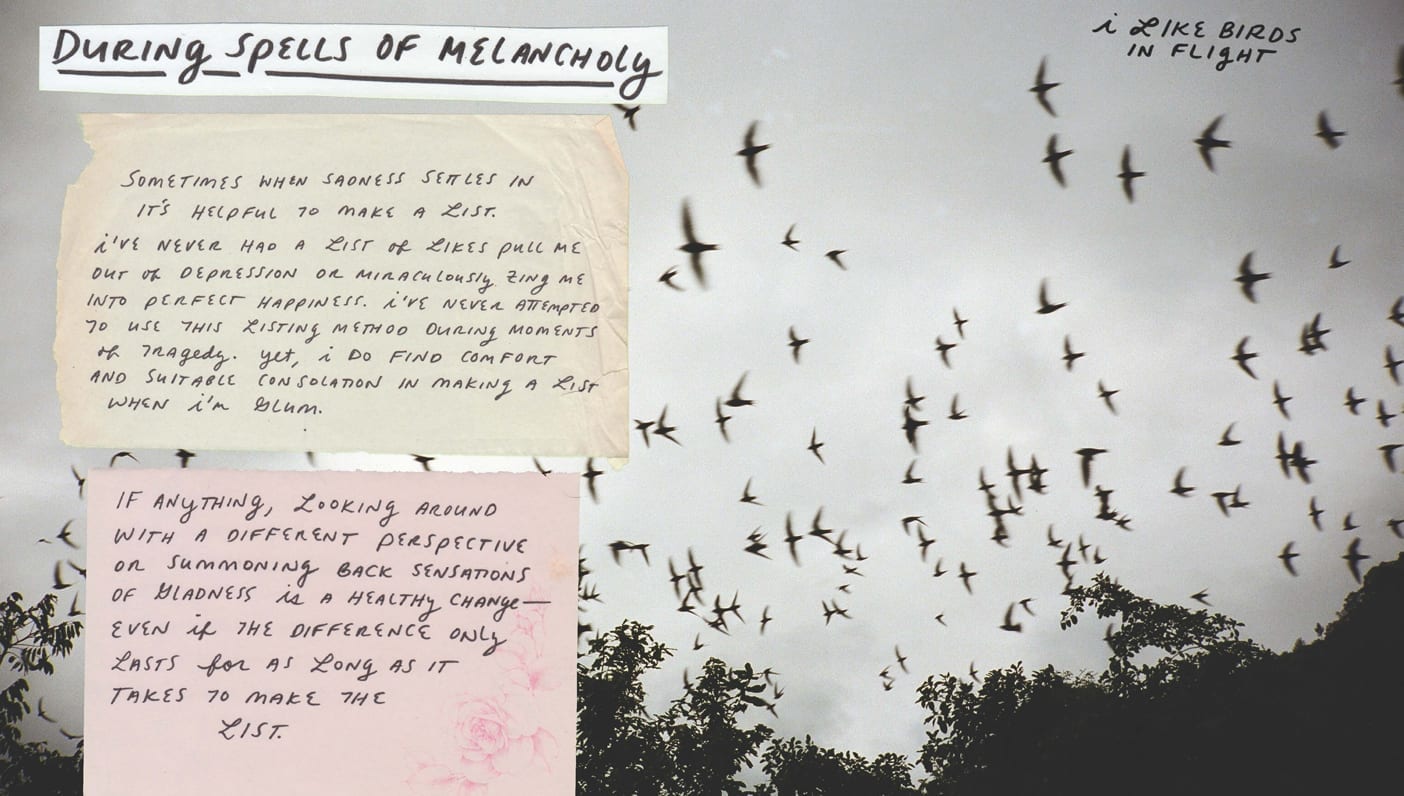 DURING SPELLS OF MELANCHOLY
i LIKE BIRDS
IN FLIGHT
SOMETIMES WHEN SADNESS SETTLES IN
IT'S HELPFUL TO MAKE A LIST.
i'VE NEVER HAD A LIST OF LIKES PULL ME
OUT OF DEPRESSION OR MIRACULOUSLY ZING ME
INTO PERFECT HAPPINESS. i'VE NEVER ATTEMPTED
TO USE THIS LISTING METHOD DURING MOMENTS
OF TRAGEDY. YET, i DO FIND COMFORT
AND SUITABLE CONSOLATION IN MAKING A LIST
WHEN i'M GLUM.
IF ANYTHING, LOOKING AROUND
WITH A DIFFERENT PERSPECTIVE
OR SUMMONING BACK SENSATIONS
OF GLADNESS is A HEALTHY CHANGE—
EVEN if THE DIFFERENCE ONLY
LASTS for AS LONG AS IT
TAKES TO MAKE THE
LIST.